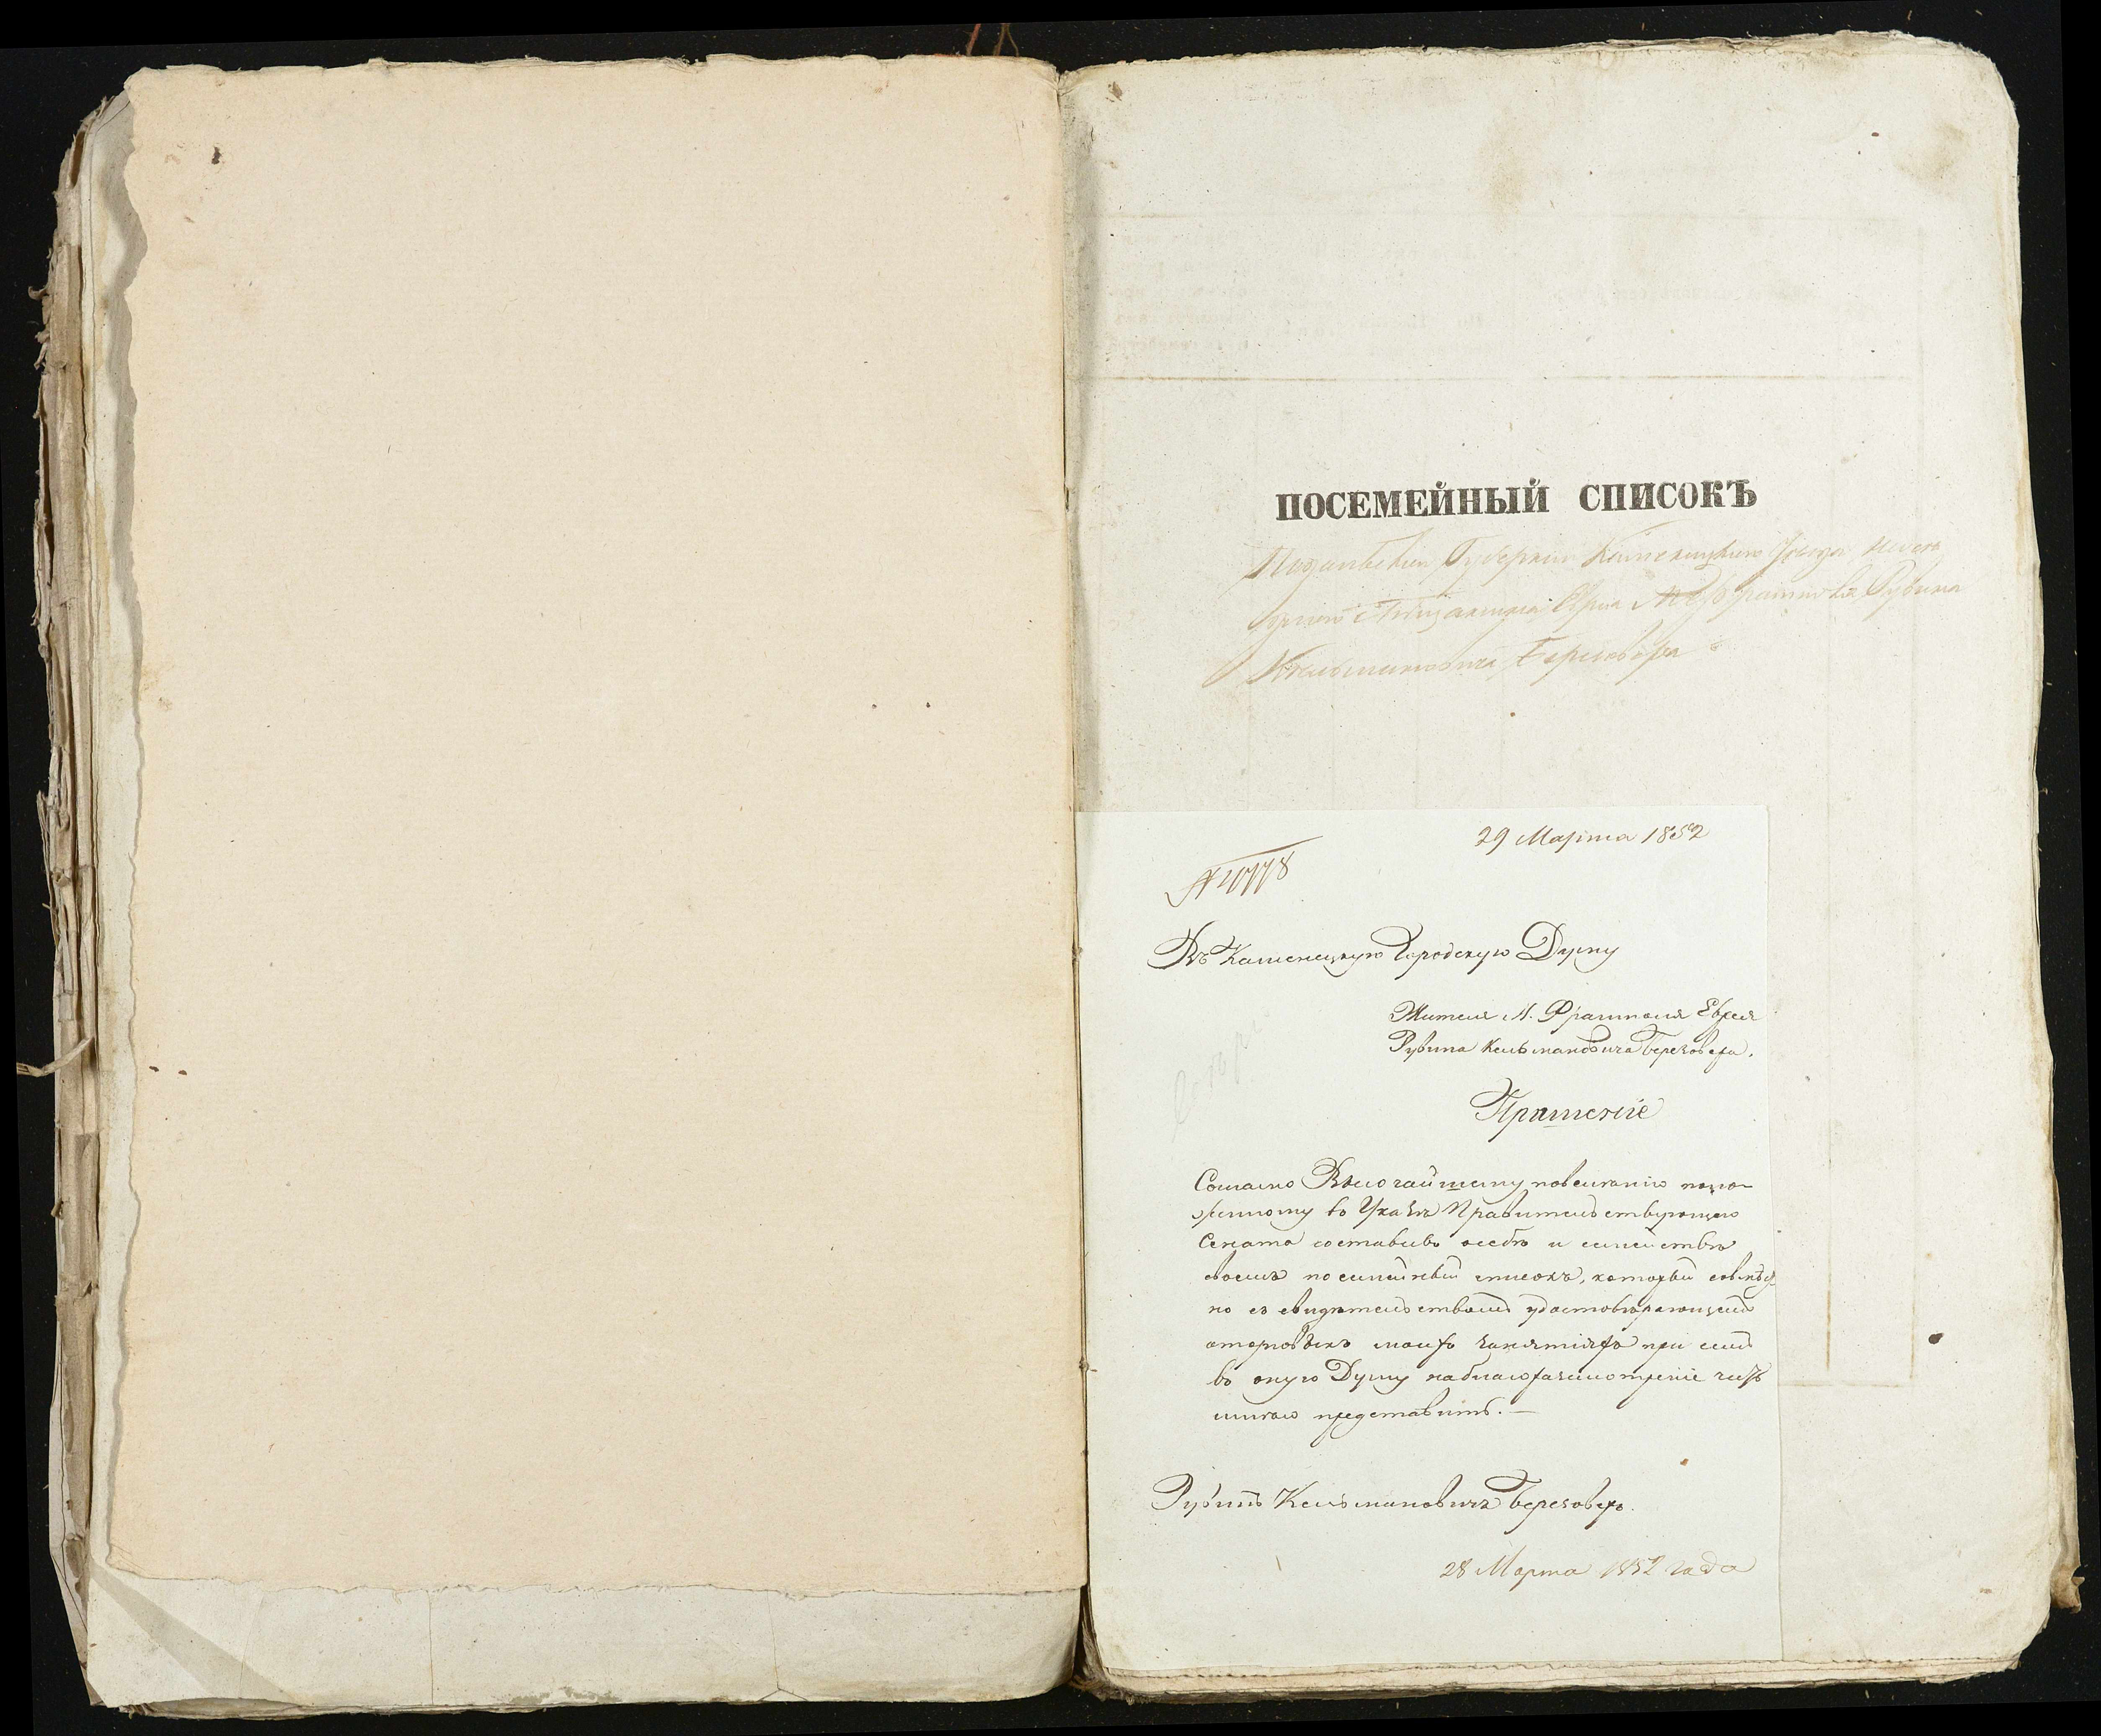 ПОСЕМЕЙНЫЙ СПИСОКЪ
Подольской Губерніи Каменецкаго Уѣзда
Еврея М. Фрамполя Рувина
Кельмановича Березовера
29 Марта 1852
Въ Каменецкую Городскую Думу
Жителя М. Фрамполя Еврея
Рувина Кельмановича Березовера.
Прошеніе
Согласно Высочайшему повеленію изло-
женному въ Указѣ Правительствующаго
Сената составивъ осебѣ и семействѣ
своемъ посемейный списокъ, который совмѣст
но съ свидѣтельствомъ удостовѣряющимъ
оторговыхъ моихъ занятіяхъ при семъ
въ оную Думу наблагоразсмотреніе честь
имѣю представить. —
Рувинъ Кельмановичъ Березоверъ.
28 Марта 1852 года